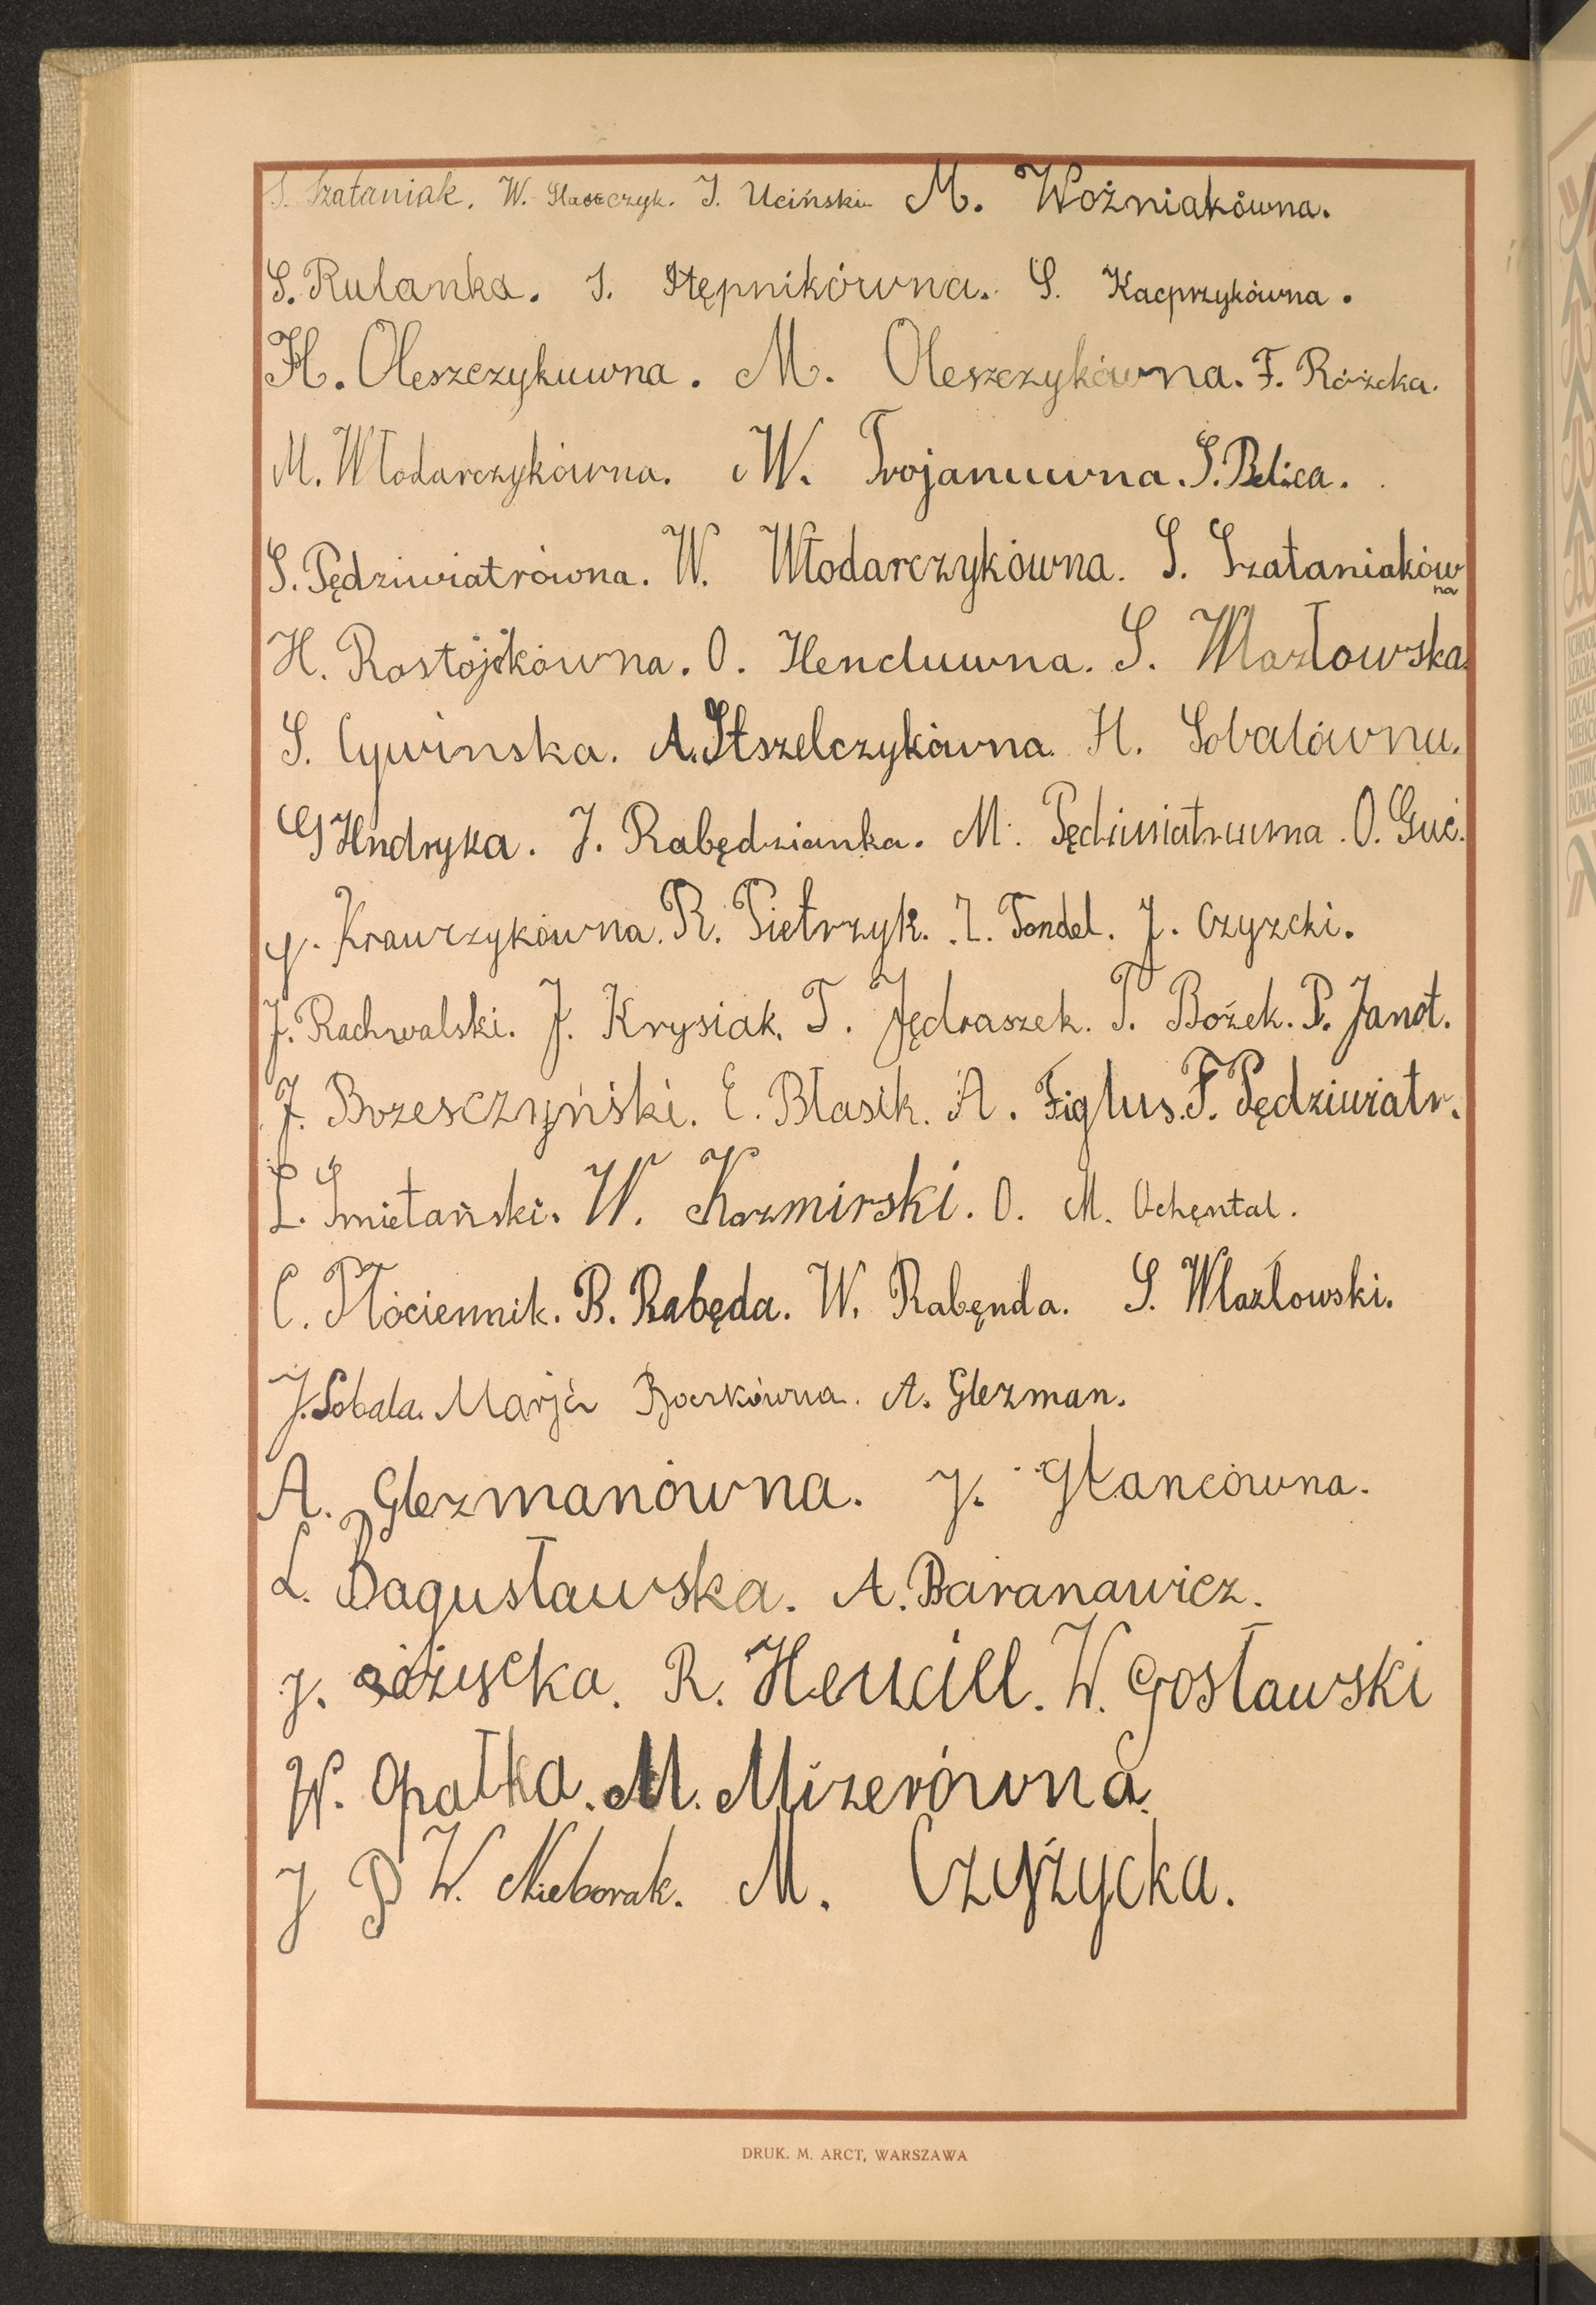 S. Szataniak. W. J. Uciński M. Woźniakówna.
S. Rulanka. J. Stępnikówna. S. Kacprzykówna.
H. Oleszczykuwna. M. Oleszczykówna. F. Różcka.
M. Włodarczykówna. W. Trojanuwna. S. Belica.
S. Pędziwiatrówna. W. Włodarczykówna. S. Szataniaków
na
H. Rostojikówna. O. Henduwna. S. Wlazłowska.
S. Cywinska. A. Stszelczykówna H. Sobalówna.
G Hndryka. J. Rabędzianka. M. Pędziwiatruwna. O. Guć.
J. Krawrzykówna. R. Pietrzyk. I. Fondel. J. Czyzcki.
J. Rachwalski. J. Krysiak. T. Jędraszek. T. Bożek. P. Janot.
J. Bozesczyński. E. Błasik. A. Figlus. F. Pędziwiatr.
L. Śmietański. W. Kazmirski. O. M. Ochęntal.
C. Płóciennik. B. Rabęda. W. Rabęnda. S. Wlazłowski.
J. Sobala. Marja A. Glezman.
A. Glezmanówna. J. Glancówna.
L. Bagusławska. A. Baranawicz.
J. R. W. Gosławski
W. Opałka. M. Mizerówna.
J P W. Nieborak. M. Czyżycka.
DRUK. M. ARCT, WARSZAWA